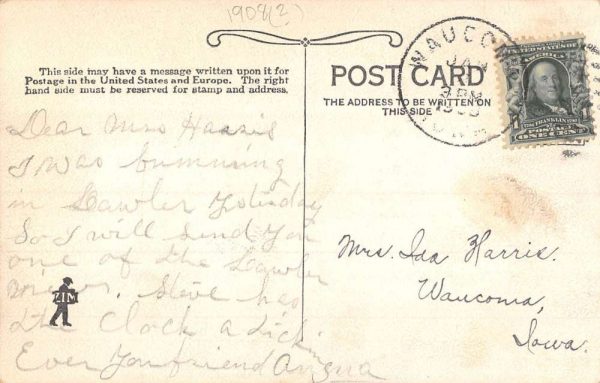 1908(?)
This side may have a message written upon it for
Postage in the United States and Europe. The right
hand side must be reserved for stamp and address.
POST CARD
THE ADDRESS TO BE WRITTEN ON
THIS SIDE
WAUCOMA
JAN
UNITED STATES OF
AMERICA
FRANKLIN
POSTAGE
ONE CENT
Dear Mrs Harris
I was bumming
in Lawler yesterday
So I will send you
one of the Lawler
views. Steve has
the clock a ticking
Ever your friend
ZIM
Mrs. Ida Harris.
Waucoma,
Iowa.